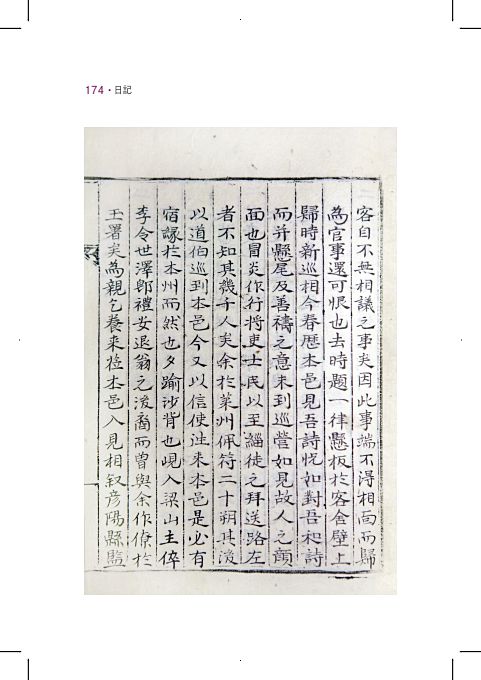 174・日記
客自不無相議之事矣因此事端不得相面而歸
為官事還可恨也去時題一律懸板於客舍壁上
歸時新巡相今春歷本邑見吾詩恍如對吾和詩
而并懸尾及善禱之意來到巡營如見故人之顔
面也冒炎作行將吏士民以至緇徒之拜送路左
者不知其幾千人矣余於萊州佩符二十朔其後
以道伯巡到本邑今又以信使往來本邑是必有
宿緣於本州而然也夕踰沙背也峴入梁山主倅
李令世澤卽禮安退翁之後裔而曾與余作僚於
玉署矣為親乞養來莅本邑入見相叙彦陽縣監